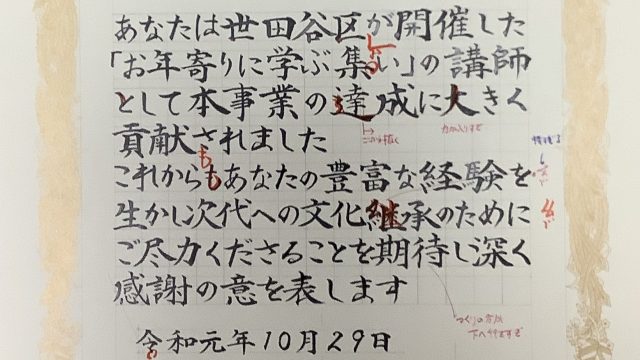 あなたは世田谷区が開催した
「お年寄りに学ぶ集い」の講師
として本事業の達成に大きく
貢献されました
これからもあなたの豊富な経験を
生かし次代への文化継承のために
ご尽力くださることを期待し深く
感謝の意を表します
令和元年10月29日